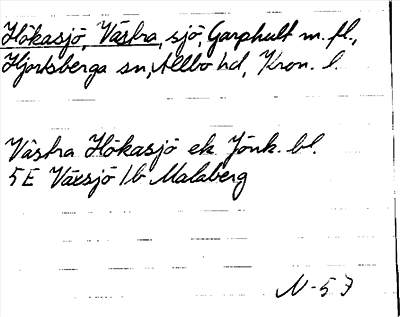 Hökasjö, Västra, sjö, Garphult m. fl.,
Hjortsberga sn, Allbo hd, Kron. l.
Västra Hökasjö ek. Jönk. bl.
5E Växsjö 1b Malaberg
N-57